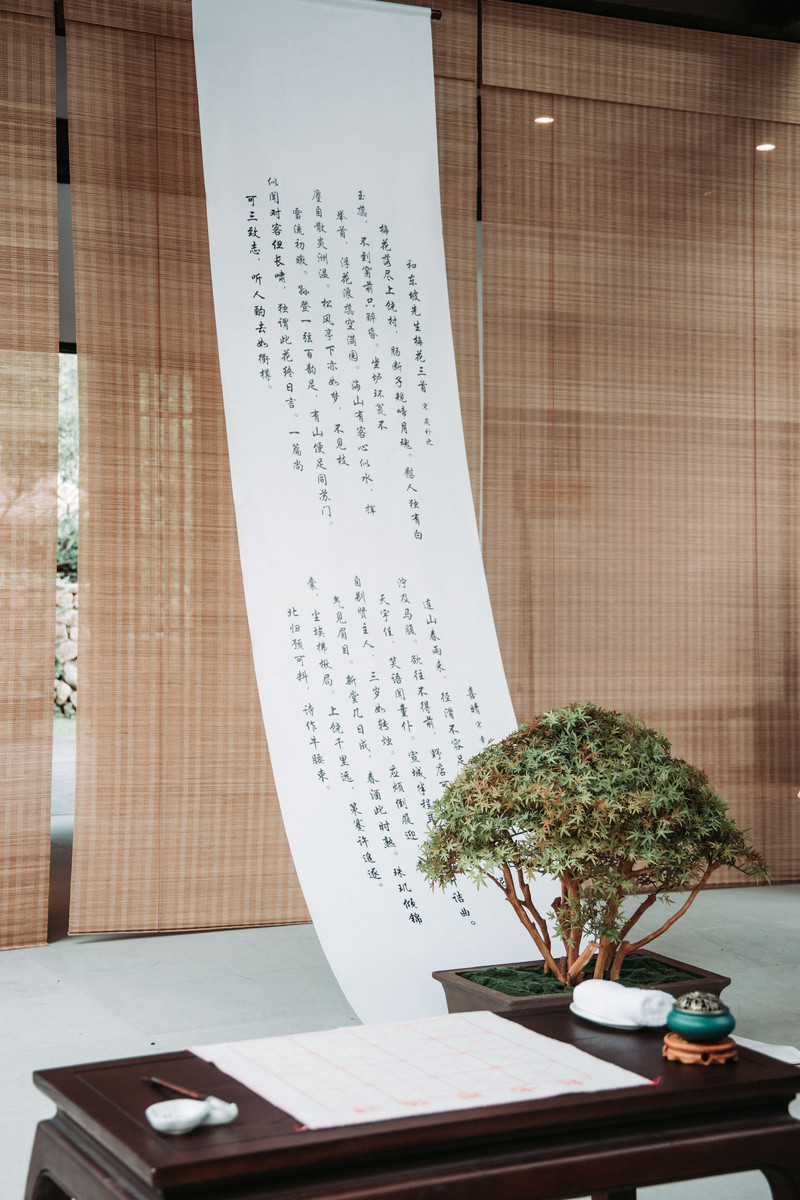 和东坡先生梅花三首 宋 晁补之
梅花落尽上饶村，肠断子规啼月魂。愁人独有白
玉蕊，不到窗前只醉昏。坐炉环瓮不
举首，浮花浪蕊空满园。海山有客心似水，挥
麈自散炎洲温。松风亭下亦如梦，不见枝
雪洗初暾。孙登一弦百韵足，有山便足同苏门。
似闻对客但长啸，独谓此花终日言。一篇尚
可三致志，听人酌去如衢樽。
喜晴 宋
连山春雨来，径滑不容足 诘曲。
泞及马腹。欲往不得前，野店可
天宇佳，笑语闻童仆。宣城半程耳
自别贤主人，三岁如转烛。应烦倒屐迎
先见眉目。新堂几日成，春酒此时熟。珠玑倾锦
囊，尘埃拂楸局。上饶千里远，策蹇许追逐。
北归预可料，诗作牛腰束。